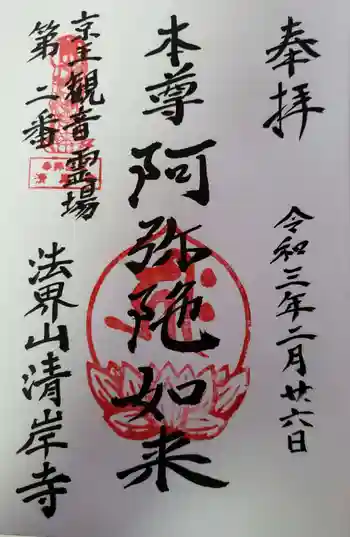 奉拝
令和三年二月廿六日
本尊 阿弥陀如来
京王観音霊場
第二番
法界山清岸寺